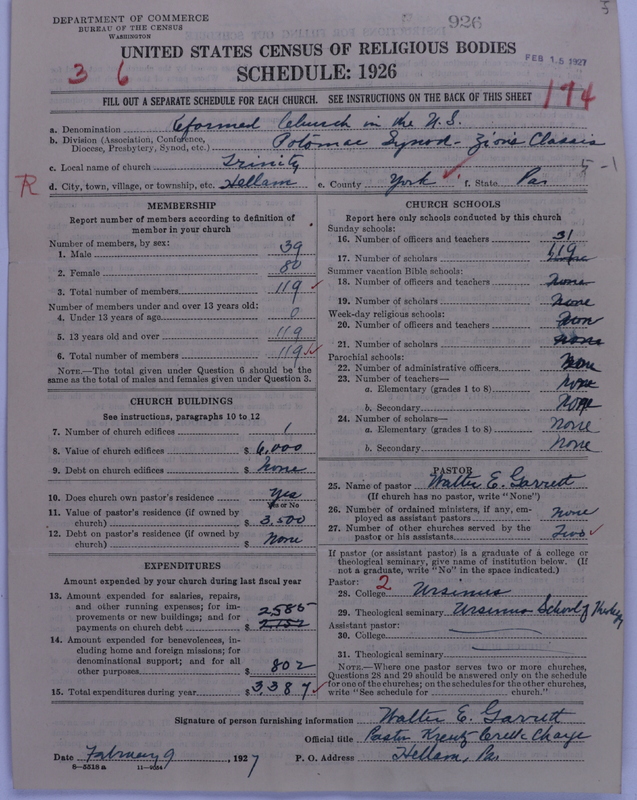 DEPARTMENT OF COMMERCE
BUREAU OF THE CENSUS
WASHINGTON
926
UNITED STATES CENSUS OF RELIGIOUS BODIES
FEB 15 1927
3 6
SCHEDULE: 1926
174
FILL OUT A SEPARATE SCHEDULE FOR EACH CHURCH. SEE INSTRUCTIONS ON THE BACK OF THIS SHEET
a. Denomination Reformed Church in the U.S.
b. Division (Association, Conference, Diocese, Presbytery, Synod, etc.) Potomac Synod - Zion's Classis
c. Local name of church Trinity 5-1
R d. City, town, village, or township, etc. Hellam e. County York f. State Pa
MEMBERSHIP
Report number of members according to definition of
member in your church
Number of members, by sex:
1. Male 39
2. Female 80
3. Total number of members 119
Number of members under and over 13 years old:
4. Under 13 years of age 0
5. 13 years old and over 119
6. Total number of members 119
NOTE.—The total given under Question 6 should be the
same as the total of males and females given under Question 3.
CHURCH BUILDINGS
See instructions, paragraphs 10 to 12
7. Number of church edifices 1
8. Value of church edifices $ 6,000
9. Debt on church edifices $ None
10. Does church own pastor's residence Yes
Yes or No
11. Value of pastor's residence (if owned by
church) $ 3,500
12. Debt on pastor's residence (if owned by
church) $ None
EXPENDITURES
Amount expended by your church during last fiscal year
13. Amount expended for salaries, repairs,
and other running expenses; for im-
provements or new buildings; and for 2585
payments on church debt $
14. Amount expended for benevolences, in-
cluding home and foreign missions; for
denominational support; and for all
other purposes $ 802
15. Total expenditures during year $ 3,387
CHURCH SCHOOLS
Report here only schools conducted by this church
Sunday schools:
16. Number of officers and teachers 31
17. Number of scholars 119
Summer vacation Bible schools:
18. Number of officers and teachers none
19. Number of scholars none
Week-day religious schools:
20. Number of officers and teachers none
21. Number of scholars none
Parochial schools:
22. Number of administrative officers none
23. Number of teachers—
a. Elementary (grades 1 to 8) none
b. Secondary none
24. Number of scholars—
a. Elementary (grades 1 to 8) none
b. Secondary none
PASTOR
25. Name of pastor Walter E. Garrett
(If church has no pastor, write "None")
26. Number of ordained ministers, if any, em-
ployed as assistant pastors none
27. Number of other churches served by the
pastor or his assistants Two
If pastor (or assistant pastor) is a graduate of a college or
theological seminary, give name of institution below. (If
not a graduate, write "No" in the space indicated.)
Pastor: 2
28. College Ursinus
29. Theological seminary Ursinus School of
Assistant pastor:
30. College
31. Theological seminary
NOTE.—Where one pastor serves two or more churches,
Questions 28 and 29 should be answered only on the schedule
for one of the churches; on the schedules for the other churches,
write "See schedule for church."
Signature of person furnishing information Walter E. Garrett
Official title Pastor Kreutz Creek Charge
Date February 9, 1927 P. O. Address Hellam, Pa
8—5518 a 11—9354